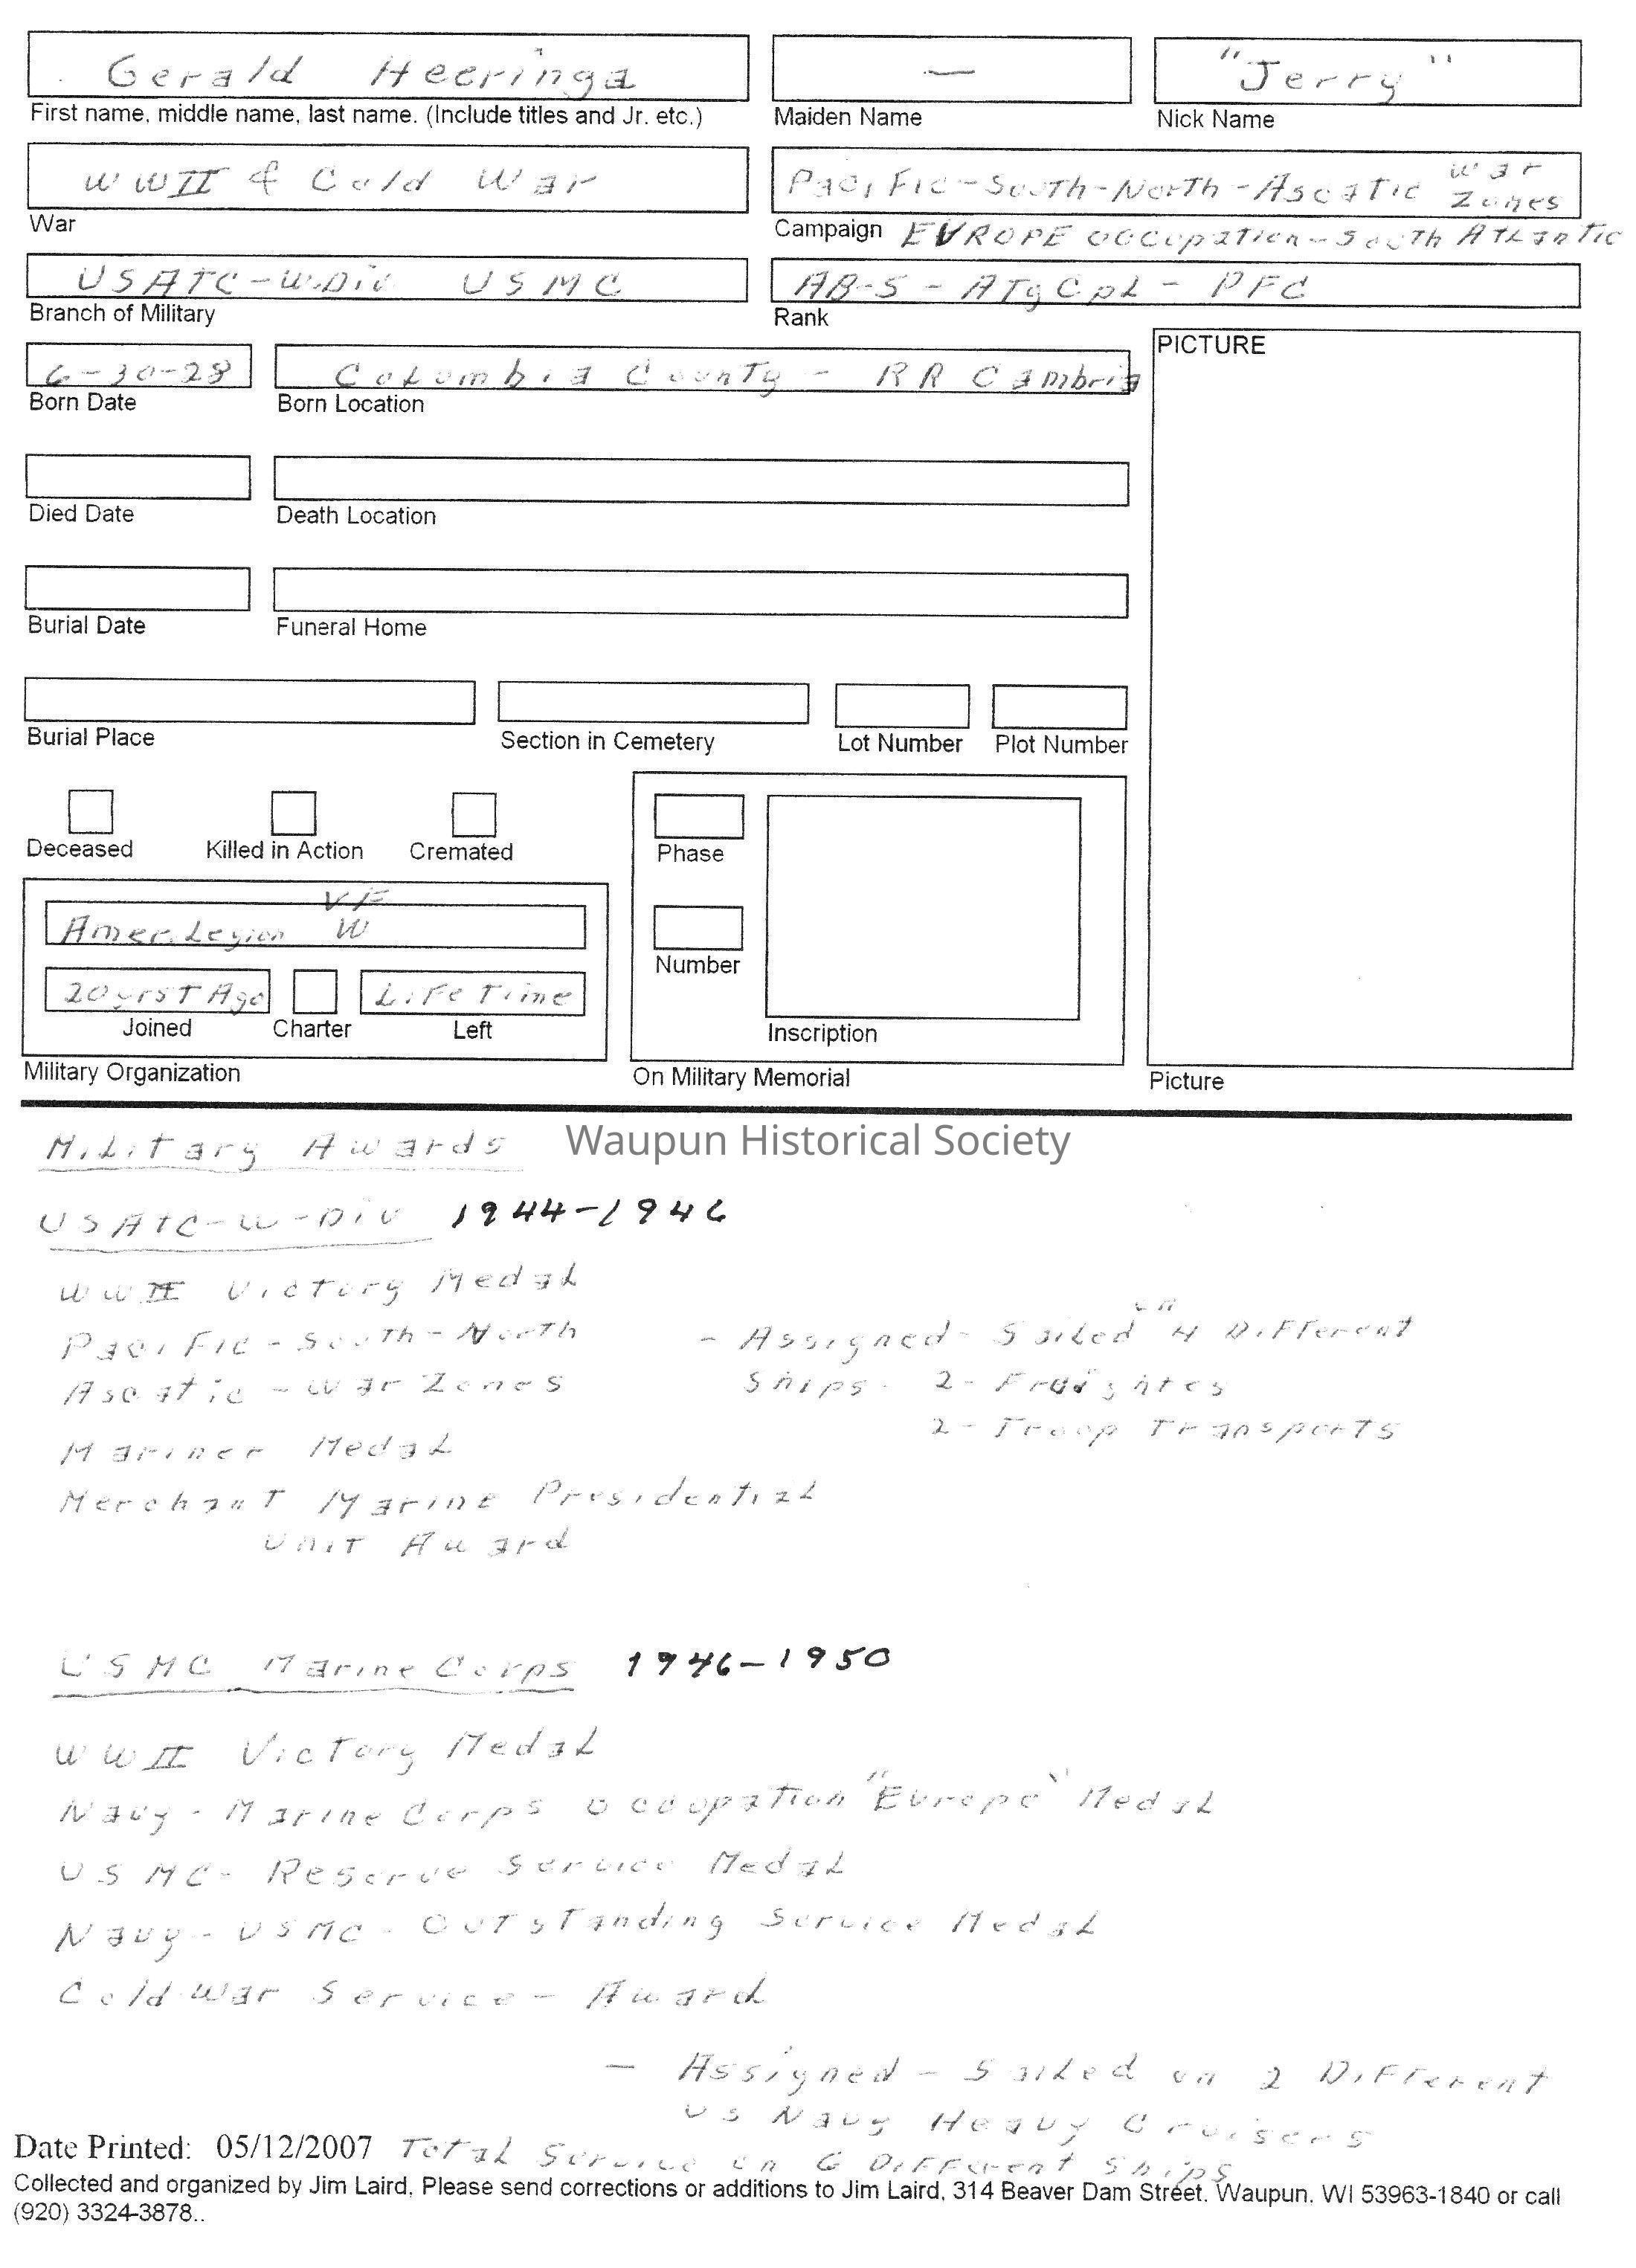 Gerald Heeringa — "Jerry"
First name, middle name, last name. (Include titles and Jr. etc.) Maiden Name Nick Name
WWII & Cold War PaciFic-South-North-Ascatic War Zones
War Campaign EUROPE Occupation-South Atlantic
USATC-W.Div USMC AB-S - ATgCpL - PFC
Branch of Military Rank
6-30-28 Columbia County - RR Cambria PICTURE
Born Date Born Location
Died Date Death Location
Burial Date Funeral Home
Burial Place Section in Cemetery Lot Number Plot Number
Deceased Killed in Action Cremated Phase
VF
Amer. Legion W
Number
20 yrst Ago LiFe Time
Joined Charter Left Inscription
Military Organization On Military Memorial Picture
Military Awards Waupun Historical Society
USATC-W-Div 1944-1946
WWII Victory Medal
PaciFic-South-North - Assigned - Sailed on 4 DiFFerent
Ascatic - War Zones Ships. 2- Freightes
2- Troop Transports
Mariner Medal
Merchant Marine Presidential
Unit Award
USMC Marine Corps 1946-1950
WWII Victory Medal
Navy - Marine Corps Occupation "Europe" Medal
USMC - Reserve Service Medal
Navy - USMC - Outstanding Service Medal
Cold War Service - Award
— Assigned - Sailed on 2 DiFFerent
US Navy Heavy Cruisers
Date Printed: 05/12/2007 Total Service on 6 DiFFerent Ships
Collected and organized by Jim Laird, Please send corrections or additions to Jim Laird, 314 Beaver Dam Street. Waupun. WI 53963-1840 or call
(920) 3324-3878..